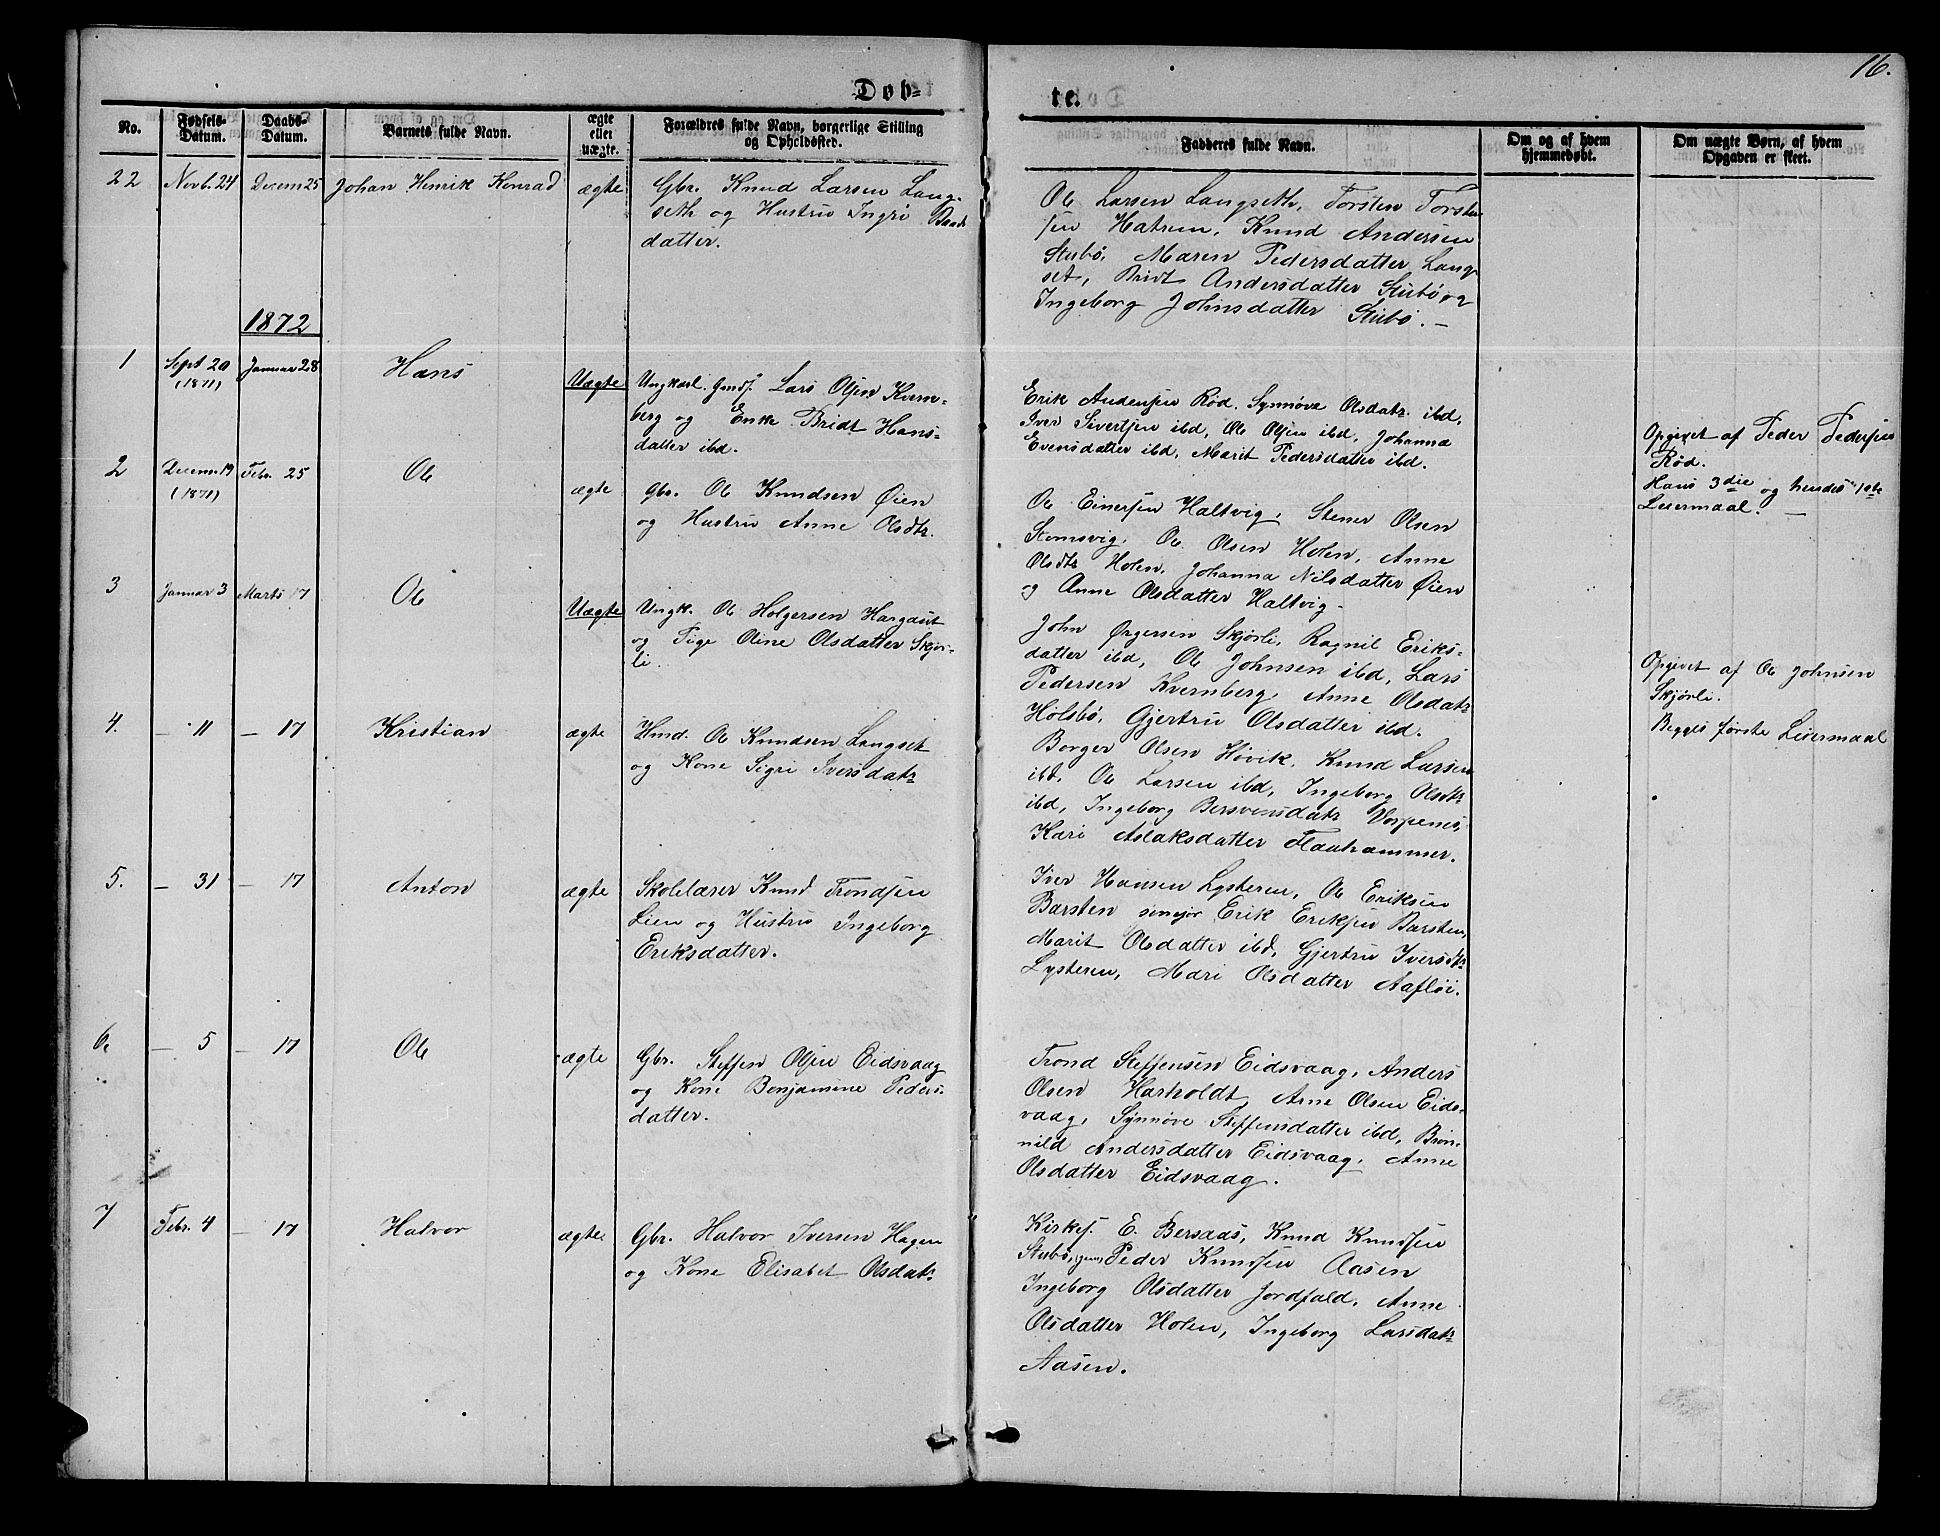 16.
Døb-
te.
No.
Fødsels-Datum.
Daabs-Datum.
Barnets fulde Navn.
ægte eller uægte.
Forældres fulde Navn, borgerlige Stilling og Opholdssted.
Fadderes fulde Navn.
Om og af hvem hjemmedøbt.
Om uægte Børn, af hvem Opgaven er skeet.
22 Novb. 24 Decem 25 Johan Henrik Konrad ægte
Gbr. Knud Larsen Lang-
seth og Hustru Ingri
datter.
Ole Larsen Langseth, Torsten Torsten-
sen Hatren, Knud Andersen
Stubø, Maren Pedersdatter Lang-
set, Bridt Andersdatter Stubø og
Ingeborg Johnsdatter Stubø. —
1872
1 Sept 20 (1871) Januar 28 Hans Uægte
Ungkarl. Gmds. Lars Olsen Kvern-
berg og Enke Bridt Hans-
datter ibd.
Erik Andersen Rød, Synnøve Olsdatr. ibd,
Iver Sivertsen ibd, Ole Olsen ibd, Johanna
Evensdatter ibd, Marit Pedersdatter ibd.
Opgivet af Peder Pedersen
Rød.
Hans 3die og hendes 1ste
Leiermaal. —
2 Decem 19 (1871) Febr. 25 Ole ægte
Gbr. Ole Knudsen Øien
og Hustru Anne Olsdtr.
Ole Einersen Haltvig, Stener Olsen
Stomsvig, Ole Olsen Holen, Anne
Olsdtr Holen, Johanna Nilsdatter Øien
og Anne Olsdatter Haltvig.
3 Januar 3 Marts 17 Ole Uægte
Ungk. Ole Holgersen Hargaut
og Pige Oline Olsdatter Skjør-
li.
John Ørgersen Skjørli, Ragnil Eriks-
datter ibd, Ole Johnsen ibd, Lars
Pedersen Kvernberg, Anne Olsdatr
Holsbø, Gjertru Olsdatter ibd.
Opgivet af Ole Johnsen
Skjørli.
Begges første Leiermaal
4. — 11 — 17 Kristian ægte
Hmd. Ole Knudsen Langset
og Kone Sigri Iversdatr
Borger Olsen Høvik, Knud Larsen
ibd, Ole Larsen ibd, Ingeborg Olsdtr
ibd, Ingeborg Bersvensdatr Vorpenes,
Kari Aslaksdatter Flauhammer.
5. — 31 — 17 Anton ægte
Skolelærer Knud Trondsen
Lien og Hustru Ingeborg
Eriksdatter.
Iver Hansen Lysteren, Ole Eriksen
Barsten senejor Erik Eriksen Barsten,
Marit Olsdatter ibd, Gjertru Iversdtr
Lysteren, Mari Olsdatter Aafløi.
6. — 5 — 17 Ole ægte
Gbr. Steffen Olsen Eidsvaag
og Kone Benjamine Peders-
datter.
Trond Steffensen Eidsvaag, Anders
Olsen Harholdt, Arne Olsen Eids-
vaag, Synnøve Steffensdatter ibd, Brøn-
nild Andersdatter Eidsvaag, Anne
Olsdatter Eidsvaag.
7 Febr. 4 — 17 Halvor ægte
Gbr. Halvor Iversen Hagen
og Kone Elisabet Olsdatr
Kirkes. E. Bersaas, Knud Knudsen
Stubø, Peder Knudsen Aasen
Ingeborg Olsdatter Jordfald, Anne
Olsdatter Holen, Ingeborg Larsdatr
Aasen.